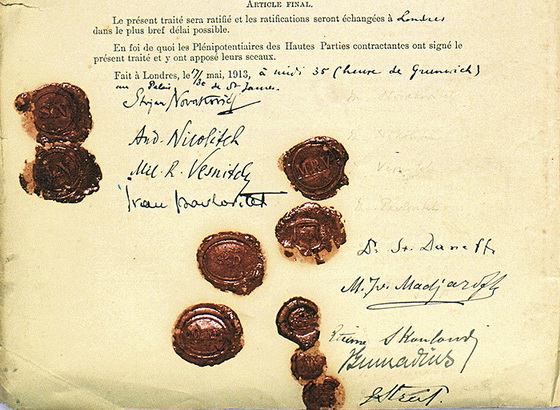 ARTICLE FINAL.
Le présent traité sera ratifié et les ratifications seront échangées à Londres
dans le plus bref délai possible.
En foi de quoi les Plénipotentiaires des Hautes Parties contractantes ont signé le
présent traité et y ont apposé leurs sceaux.
Fait à Londres, le 17/30 mai, 1913, à midi 35 (heure de Greenwich)
au Palais de St. James.
Stojan Novakovitch
And. Nicolitch
Mil. R. Vesnitch
Ivan Pavlovitch
D. St. Daneff
M. Iv. Madjaroff
Etienne Skouloudi
J. Gennadius
G. Streit.